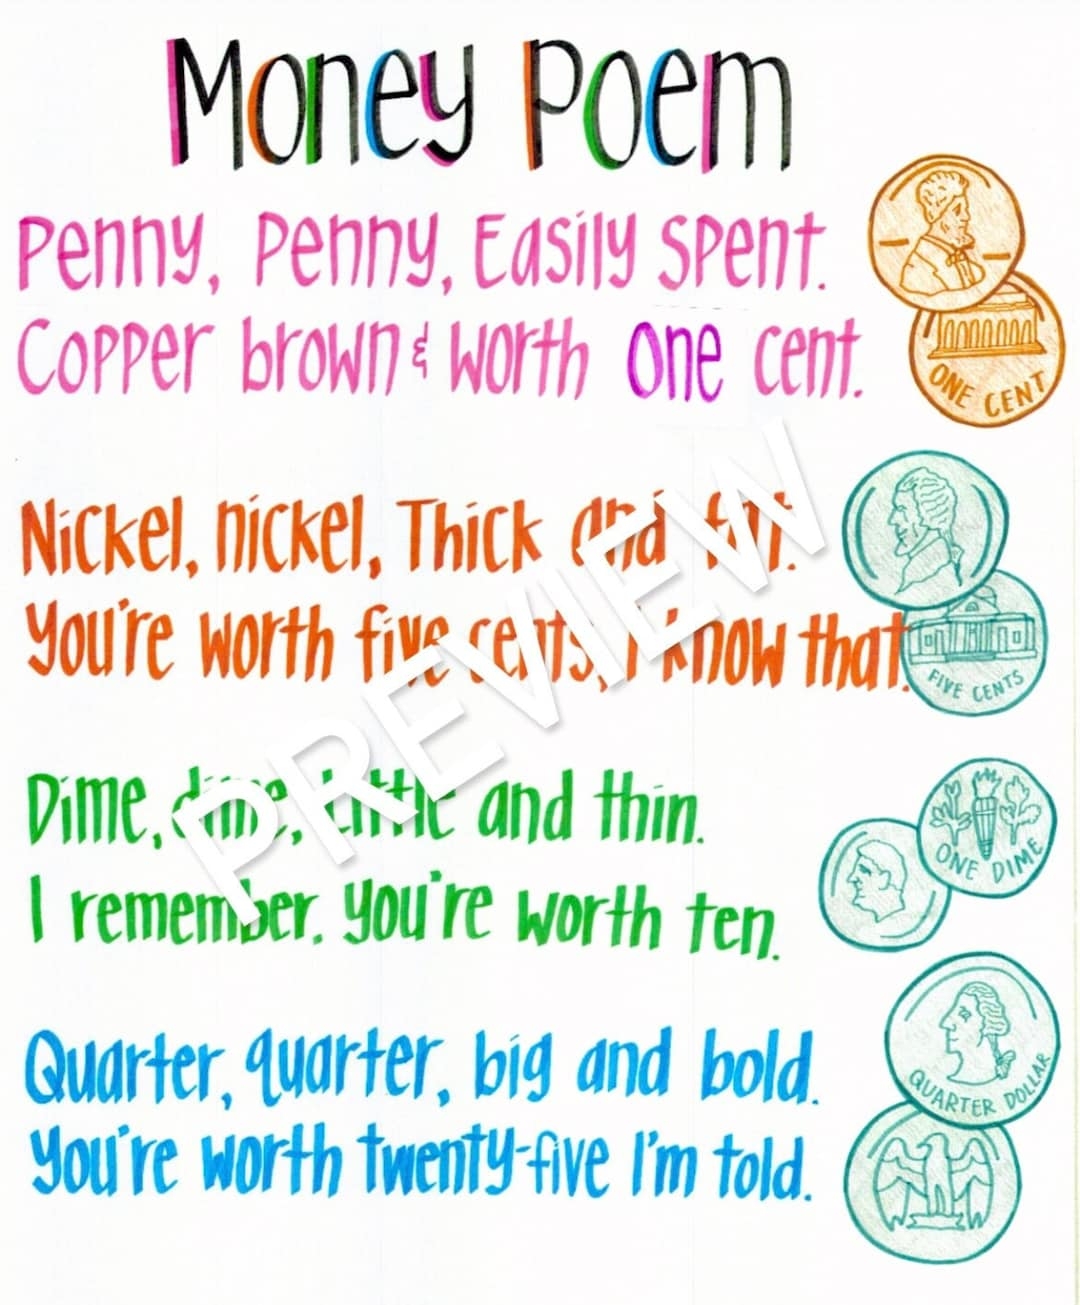 Money Poem
Penny, Penny, Easily spent.
Copper brown & worth one cent.
ONE CENT
Nickel, nickel, Thick and fat.
You're worth five cents, I know that.
FIVE CENTS
Dime, dime, Little and thin.
I remember. you're worth ten.
ONE DIME
Quarter, quarter, big and bold.
You're worth twenty-five I'm told.
QUARTER DOLLAR
PREVIEW